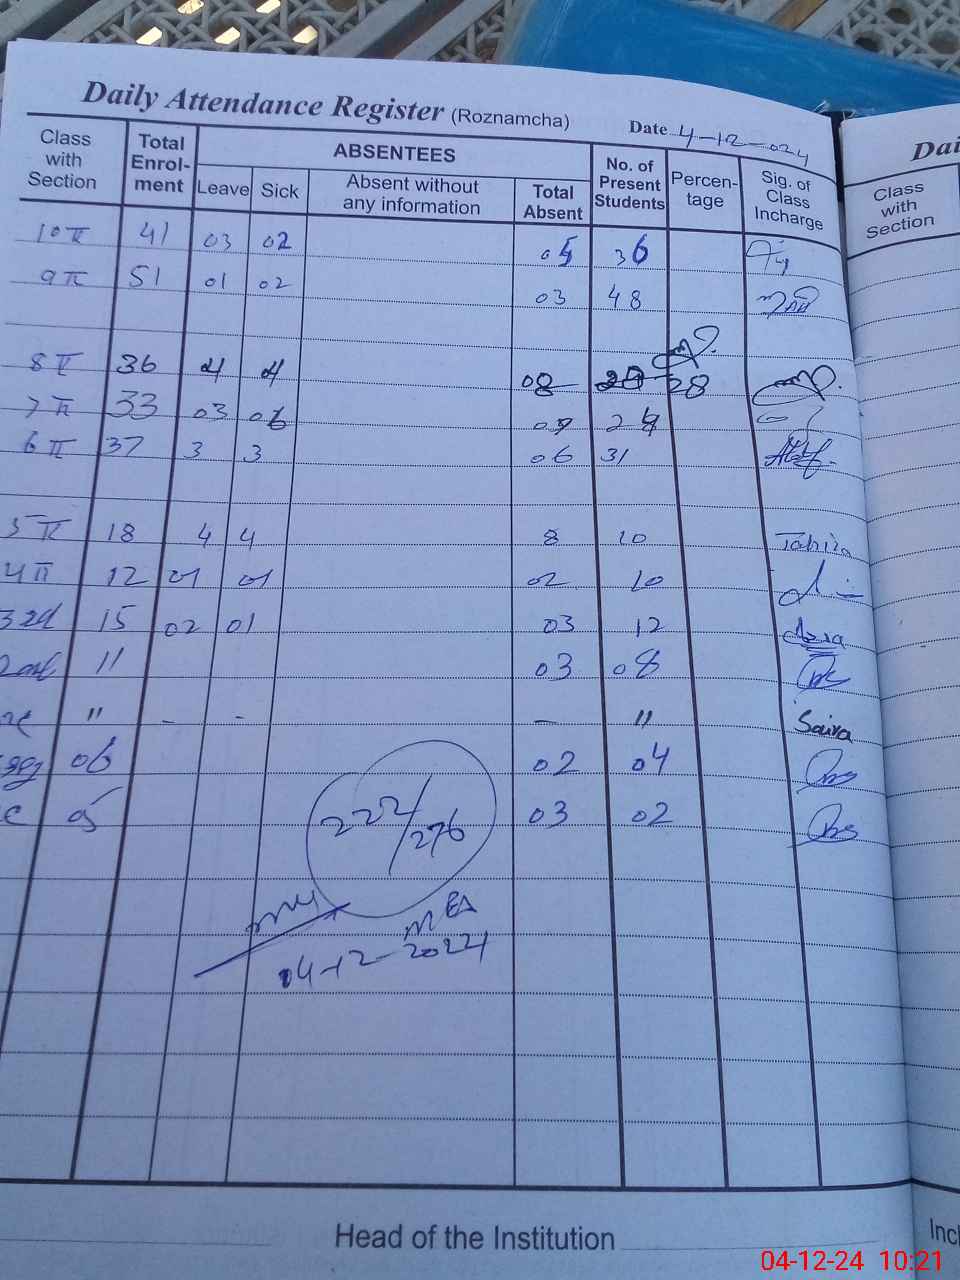 Daily Attendance Register (Roznamcha) Date 4-12-024
Class with Section Total Enrol-ment ABSENTEES No. of Present Students Percen-tage Sig. of Class Incharge
Leave Sick Absent without any information Total Absent
10 41 03 02 05 36
9 51 01 02 03 48
8 36 4 4 08 28
7 33 03 06 09 24
6 37 3 3 06 31
5 18 4 4 8 10 Tahira
4 12 01 01 02 10
3rd 15 02 01 03 12 Azra
11 03 08
11 - - - 11 Saira
06 02 04
05 03 02
222/276
04-12-2024
Head of the Institution
Dai
Class with Section
Incl
04-12-24 10:21